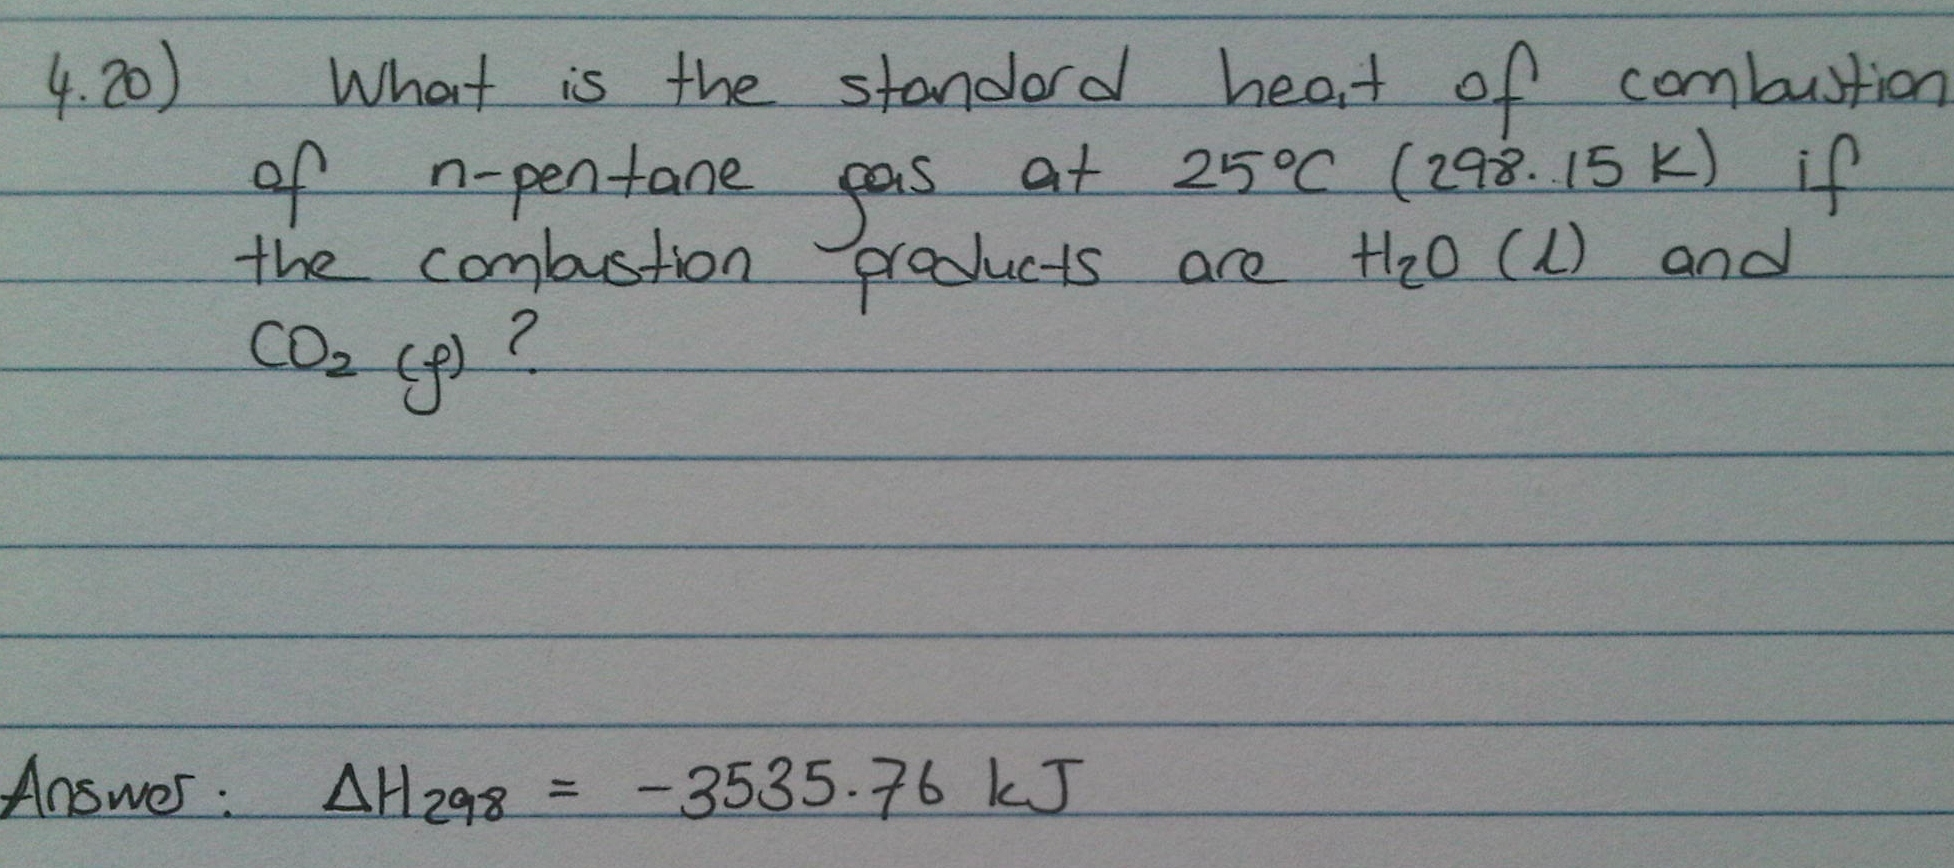 4.20) What is the standard heat of combustion
of n-pentane gas at 25°C (298.15 K) if
the combustion products are H₂O (l) and
CO₂ (g) ?
Answer: ΔH₂₉₈ = -3535.76 kJ